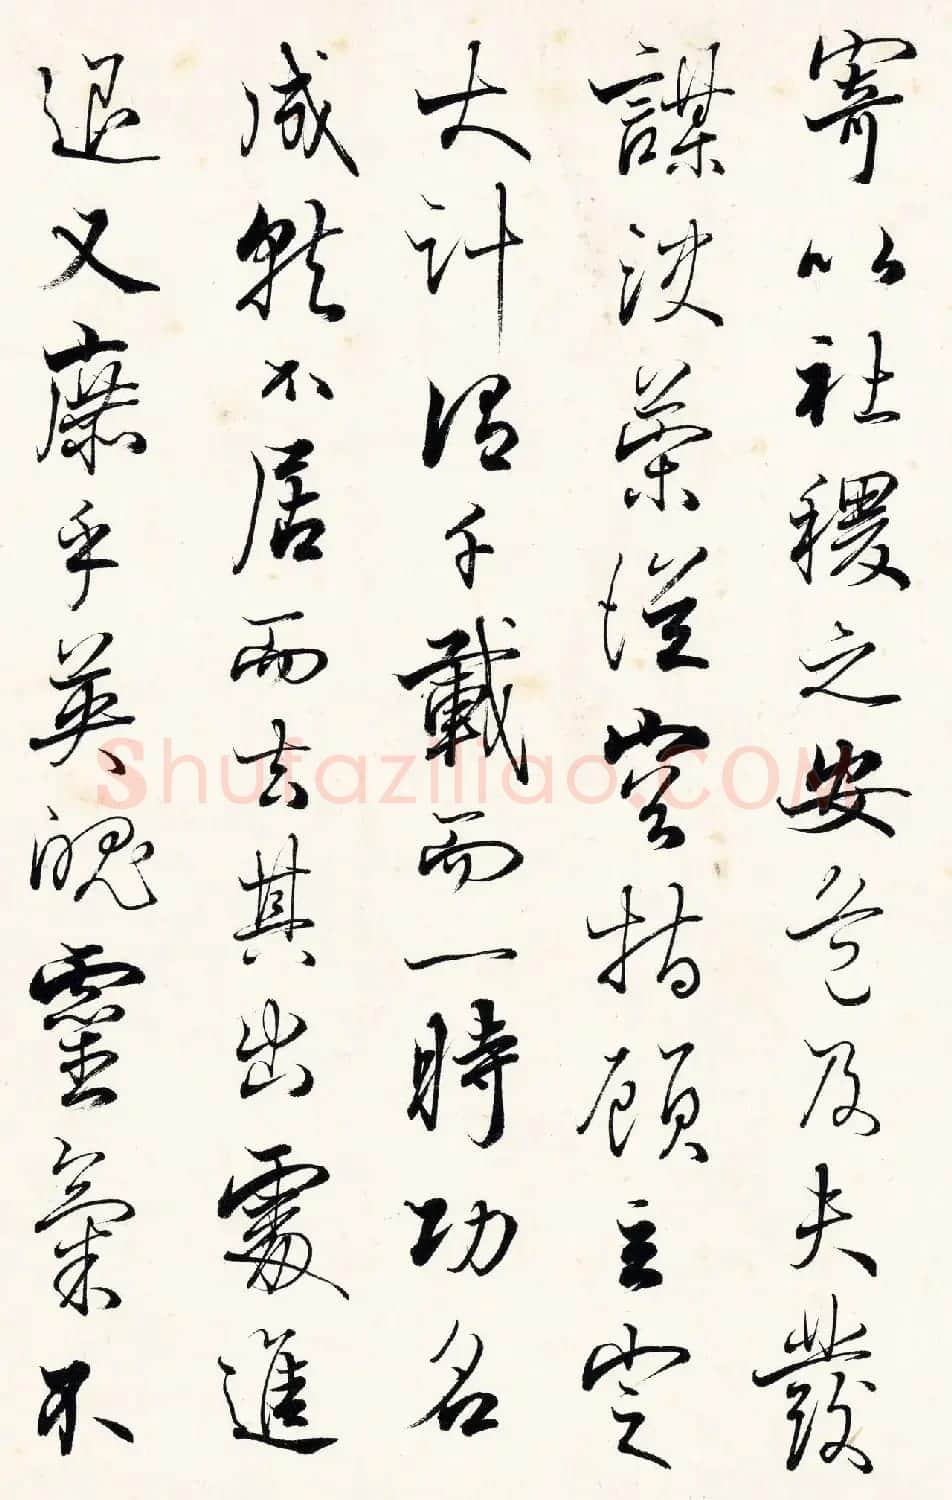 寄以社稷之安危及夫發
謀決策從容指顧立定
大計謂千載而一時功名
成就不居而去其出處進
退又庶乎英魄靈氣不
Shufaziliao.COM